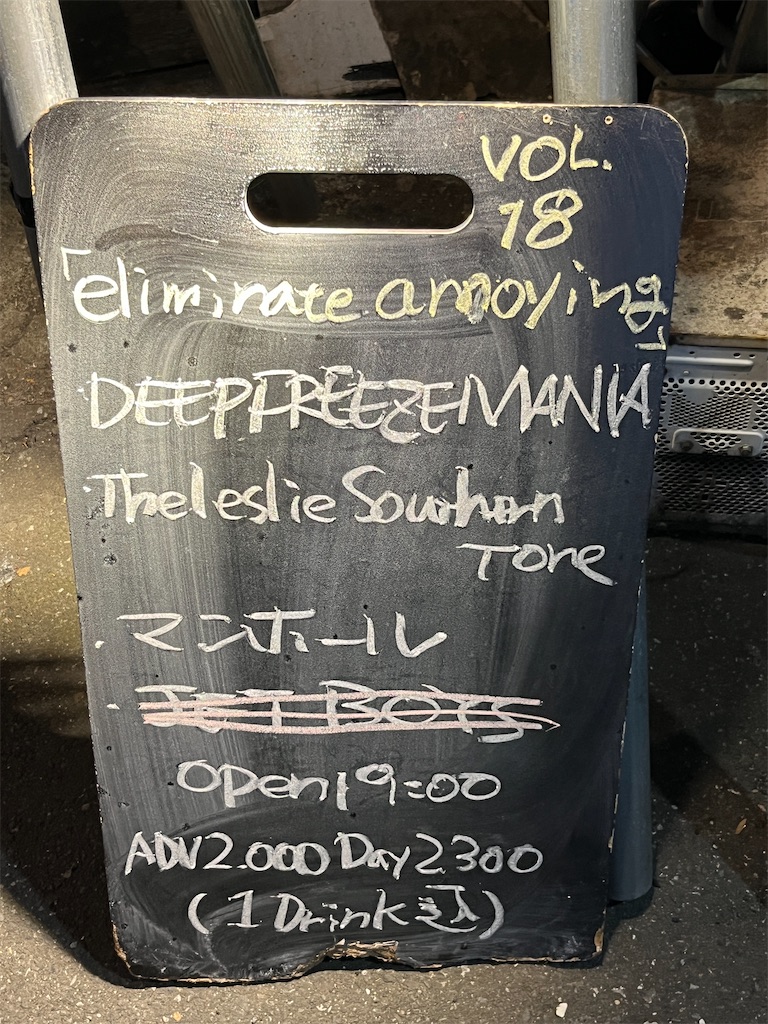 VOL.
18
「eliminate annoying」
DEEPFREEZEMANIA
・Theleslie Sowhan
Tone
・マンホール
open 19:00
ADV2.000 Day2300
(1 Drink込)